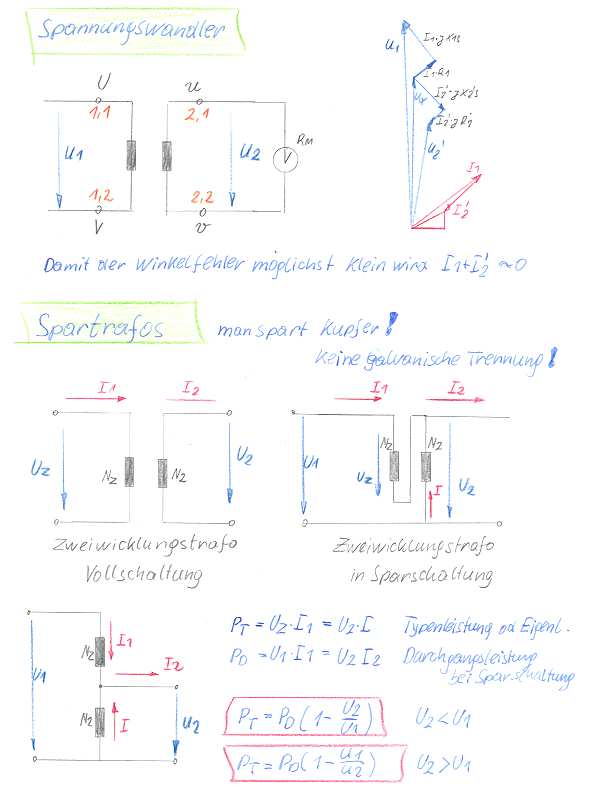 Spannungswandler
U u
1,1 2,1
U1 U2 V RM
1,2 2,2
V v
U1 I1·jX1s
I1·R1
I2'·jX2's
I2'·jR2'
U2'
I1
I2'
Damit der Winkelfehler möglichst klein wird I1+I2' ≈ 0
Spartrafos man spart Kupfer!
Keine galvanische Trennung!
I1 I2 I1 I2
Uz Nz N2 U2 U1 Uz Nz N2 U2
I
Zweiwicklungstrafo Zweiwicklungstrafo
Vollschaltung in Sparschaltung
U1 Nz I1 I2
N2 I U2
PT = Uz·I1 = U2·I Typenleistung od Eigenl.
PD = U1·I1 = U2 I2 Durchgangsleistung
bei Sparschaltung
PT = PD (1 - U2/U1) U2 < U1
PT = PD (1 - U1/U2) U2 > U1